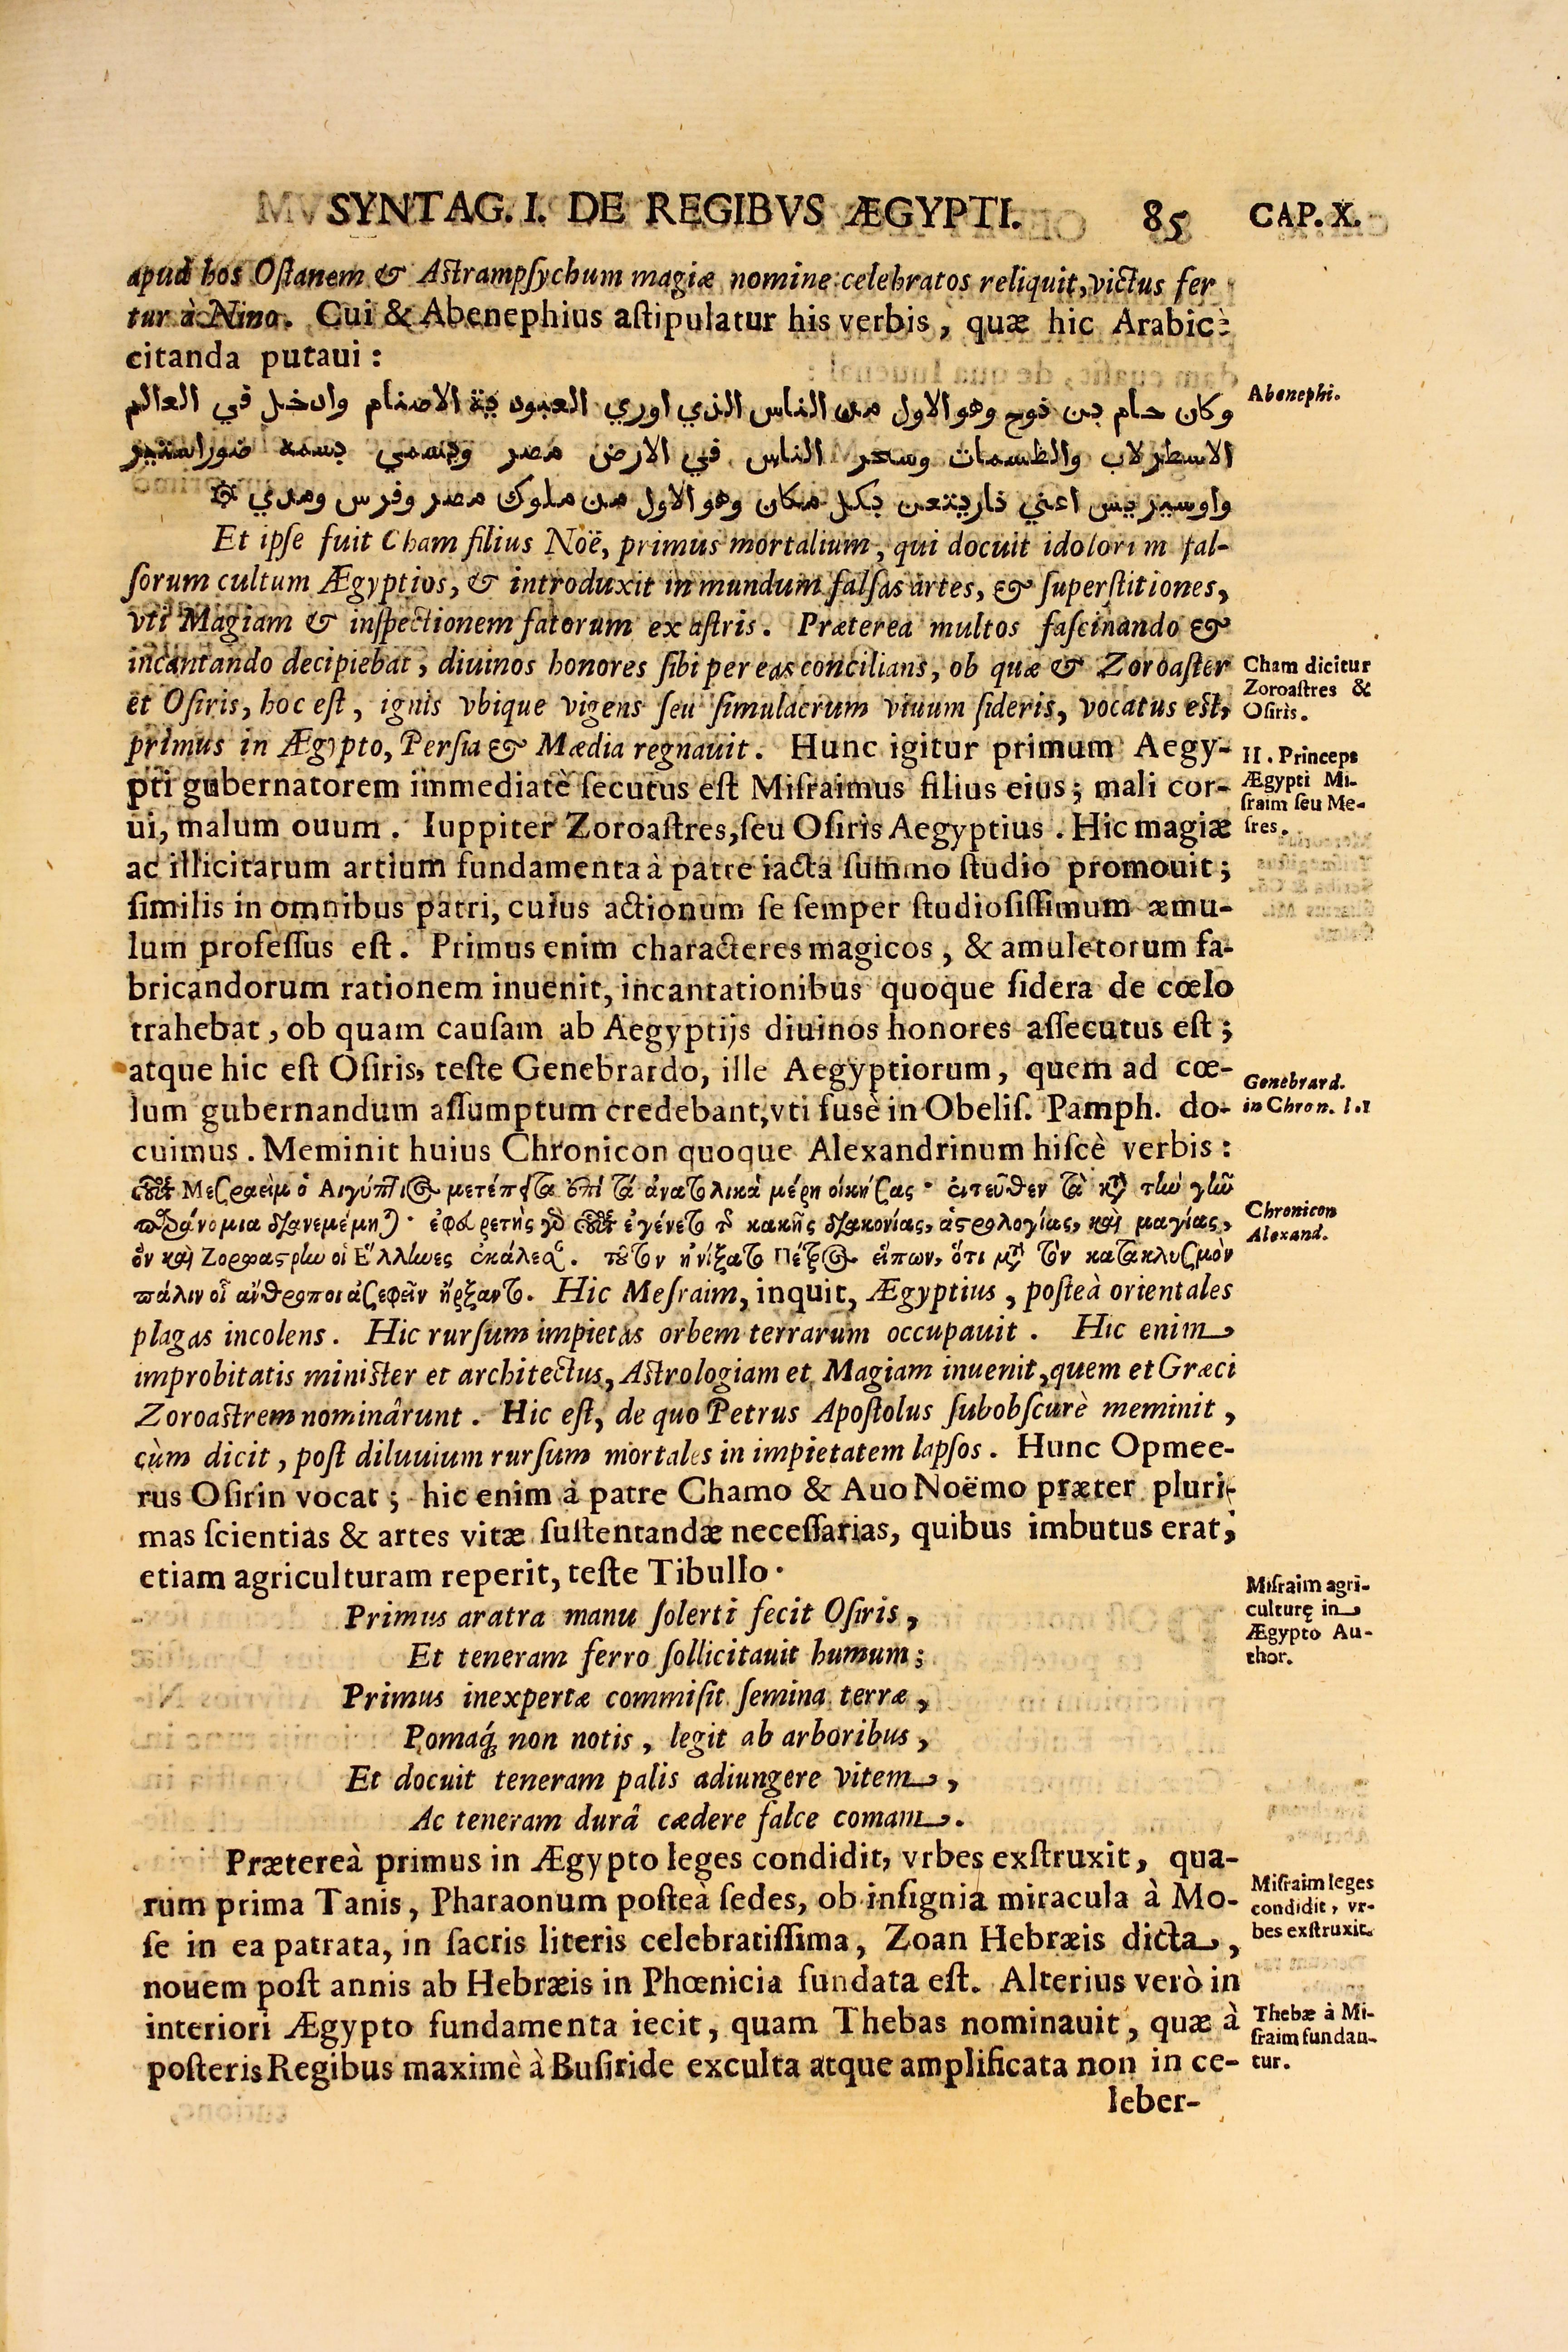 SYNTAG. I. DE REGIBVS ÆGYPTI. 85 CAP. X.
apud hos Ostanem & Astrampsychum magiæ nomine celebratos reliquit, victus fer
tur à Nino. Cui & Abenephius astipulatur his verbis, quæ hic Arabicè
citanda putaui:
Abenephi.
وكان حام بن نوح وهو الاول من الناس الذي اوري العبود ية الاصنام وادخل في العالم
الاسطرلاب والطسمات وسحر الناس في الارض مصر ويسمي بسمه ضوراستير
واوسيريس اعني نار يتعن بكل مكان وهو الاول من ملوك مصر وفرس ومدي
Et ipse fuit Cham filius Noë, primus mortalium, qui docuit idolorum fal-
sorum cultum Ægyptios, & introduxit in mundum falsas artes, & superstitiones,
vti Magiam & inspectionem fatorum ex astris. Præterea multos fascinando &
incantando decipiebat, diuinos honores sibi per eas concilians, ob quæ & Zoroaster
et Osiris, hoc est, ignis vbique vigens seu simulacrum viuum sideris, vocatus est,
primus in Ægypto, Persia & Mædia regnauit. Hunc igitur primum Aegy-
pti gubernatorem immediatè secutus est Misraimus filius eius; mali cor-
ui, malum ouum. Iuppiter Zoroastres, seu Osiris Aegyptius. Hic magiæ
ac illicitarum artium fundamenta à patre iacta summo studio promouit;
similis in omnibus patri, cuius actionum se semper studiosissimum æmu-
lum professus est. Primus enim characteres magicos, & amuletorum fa-
bricandorum rationem inuenit, incantationibus quoque sidera de cœlo
trahebat, ob quam causam ab Aegyptijs diuinos honores assecutus est;
atque hic est Osiris, teste Genebrardo, ille Aegyptiorum, quem ad cœ-
lum gubernandum assumptum credebant, vti fusè in Obelis. Pamph. do-
cuimus. Meminit huius Chronicon quoque Alexandrinum hiscè verbis:
Cham dicitur
Zoroastres &
Osiris.
II. Princeps
Ægypti Mi-
sraim seu Me-
sres.
Genebrard.
in Chron. l.1
Μεσραεὶμ ὁ Αιγύπτι(Θ) μετέπειτα ἐπὶ τὰ ἀνατολικὰ μέρη οἰκήσας· ἐντεῦθεν τὰ κατὰ τὴν γῆν
παράνομια διανεμέμηται· ἐγένετο τ κακῆς διακονίας, ἀστρολογίας, καὶ μαγίας,
ὃν καὶ Ζοροαστρην οἱ Ἕλληνες ἐκάλεσαν. τοῦτον ἠνίξατο Πέτρ(Θ) εἴπων, ὅτι μετὰ τὸν κατακλυσμὸν
πάλιν οἱ ἀνθροποι ἀσεφεῖν ἤρξαντο. Hic Mesraim, inquit, Ægyptius, posteà orientales
plagas incolens. Hic rursum impietas orbem terrarum occupauit. Hic enim
improbitatis minister et architectus, Astrologiam et Magiam inuenit, quem et Græci
Zoroastrem nominârunt. Hic est, de quo Petrus Apostolus subobscurè meminit,
cùm dicit, post diluuium rursum mortales in impietatem lapsos. Hunc Opmee-
rus Osirin vocat; hic enim à patre Chamo & Auo Noëmo præter pluri-
mas scientias & artes vitæ sustentandæ necessarias, quibus imbutus erat,
etiam agriculturam reperit, teste Tibullo.
Chronicon
Alexand.
Primus aratra manu solerti fecit Osiris,
Et teneram ferro sollicitauit humum;
Primus inexpertæ commisit semina terræ,
Pomaq́; non notis, legit ab arboribus,
Et docuit teneram palis adiungere vitem,
Ac teneram durâ cædere falce comam.
Misraim agri-
culturę in
Ægypto Au-
thor.
Prætereà primus in Ægypto leges condidit, vrbes exstruxit, qua-
rum prima Tanis, Pharaonum posteà sedes, ob insignia miracula à Mo-
se in ea patrata, in sacris literis celebratissima, Zoan Hebræis dicta,
nouem post annis ab Hebræis in Phœnicia fundata est. Alterius verò in
interiori Ægypto fundamenta iecit, quam Thebas nominauit, quæ à
posteris Regibus maximè à Busiride exculta atque amplificata non in ce-
leber-
Misraim leges
condidit, vr-
bes exstruxit.
Thebæ à Mi-
sraim fundan-
tur.